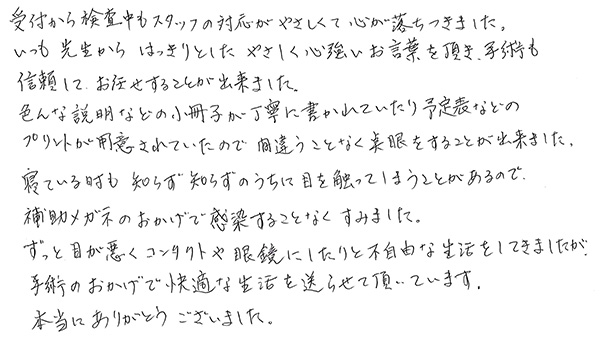 受付から検査中もスタッフの対応がやさしくて心が落ちつきました。
いつも先生からはっきりとしたやさしく心強いお言葉を頂き、手術も
信頼して、お任せすることが出来ました。
色んな説明などの小冊子が丁寧に書かれていたり予定表などの
プリントが用意されていたので間違うことなく点眼をすることが出来ました。
寝ている時も知らず知らずのうちに目を触ってしまうことがあるので、
補助メガネのおかげで感染することなくすみました。
ずっと目が悪くコンタクトや眼鏡にしたりと不自由な生活をしてきましたが、
手術のおかげで快適な生活を送らせて頂いています。
本当にありがとうございました。